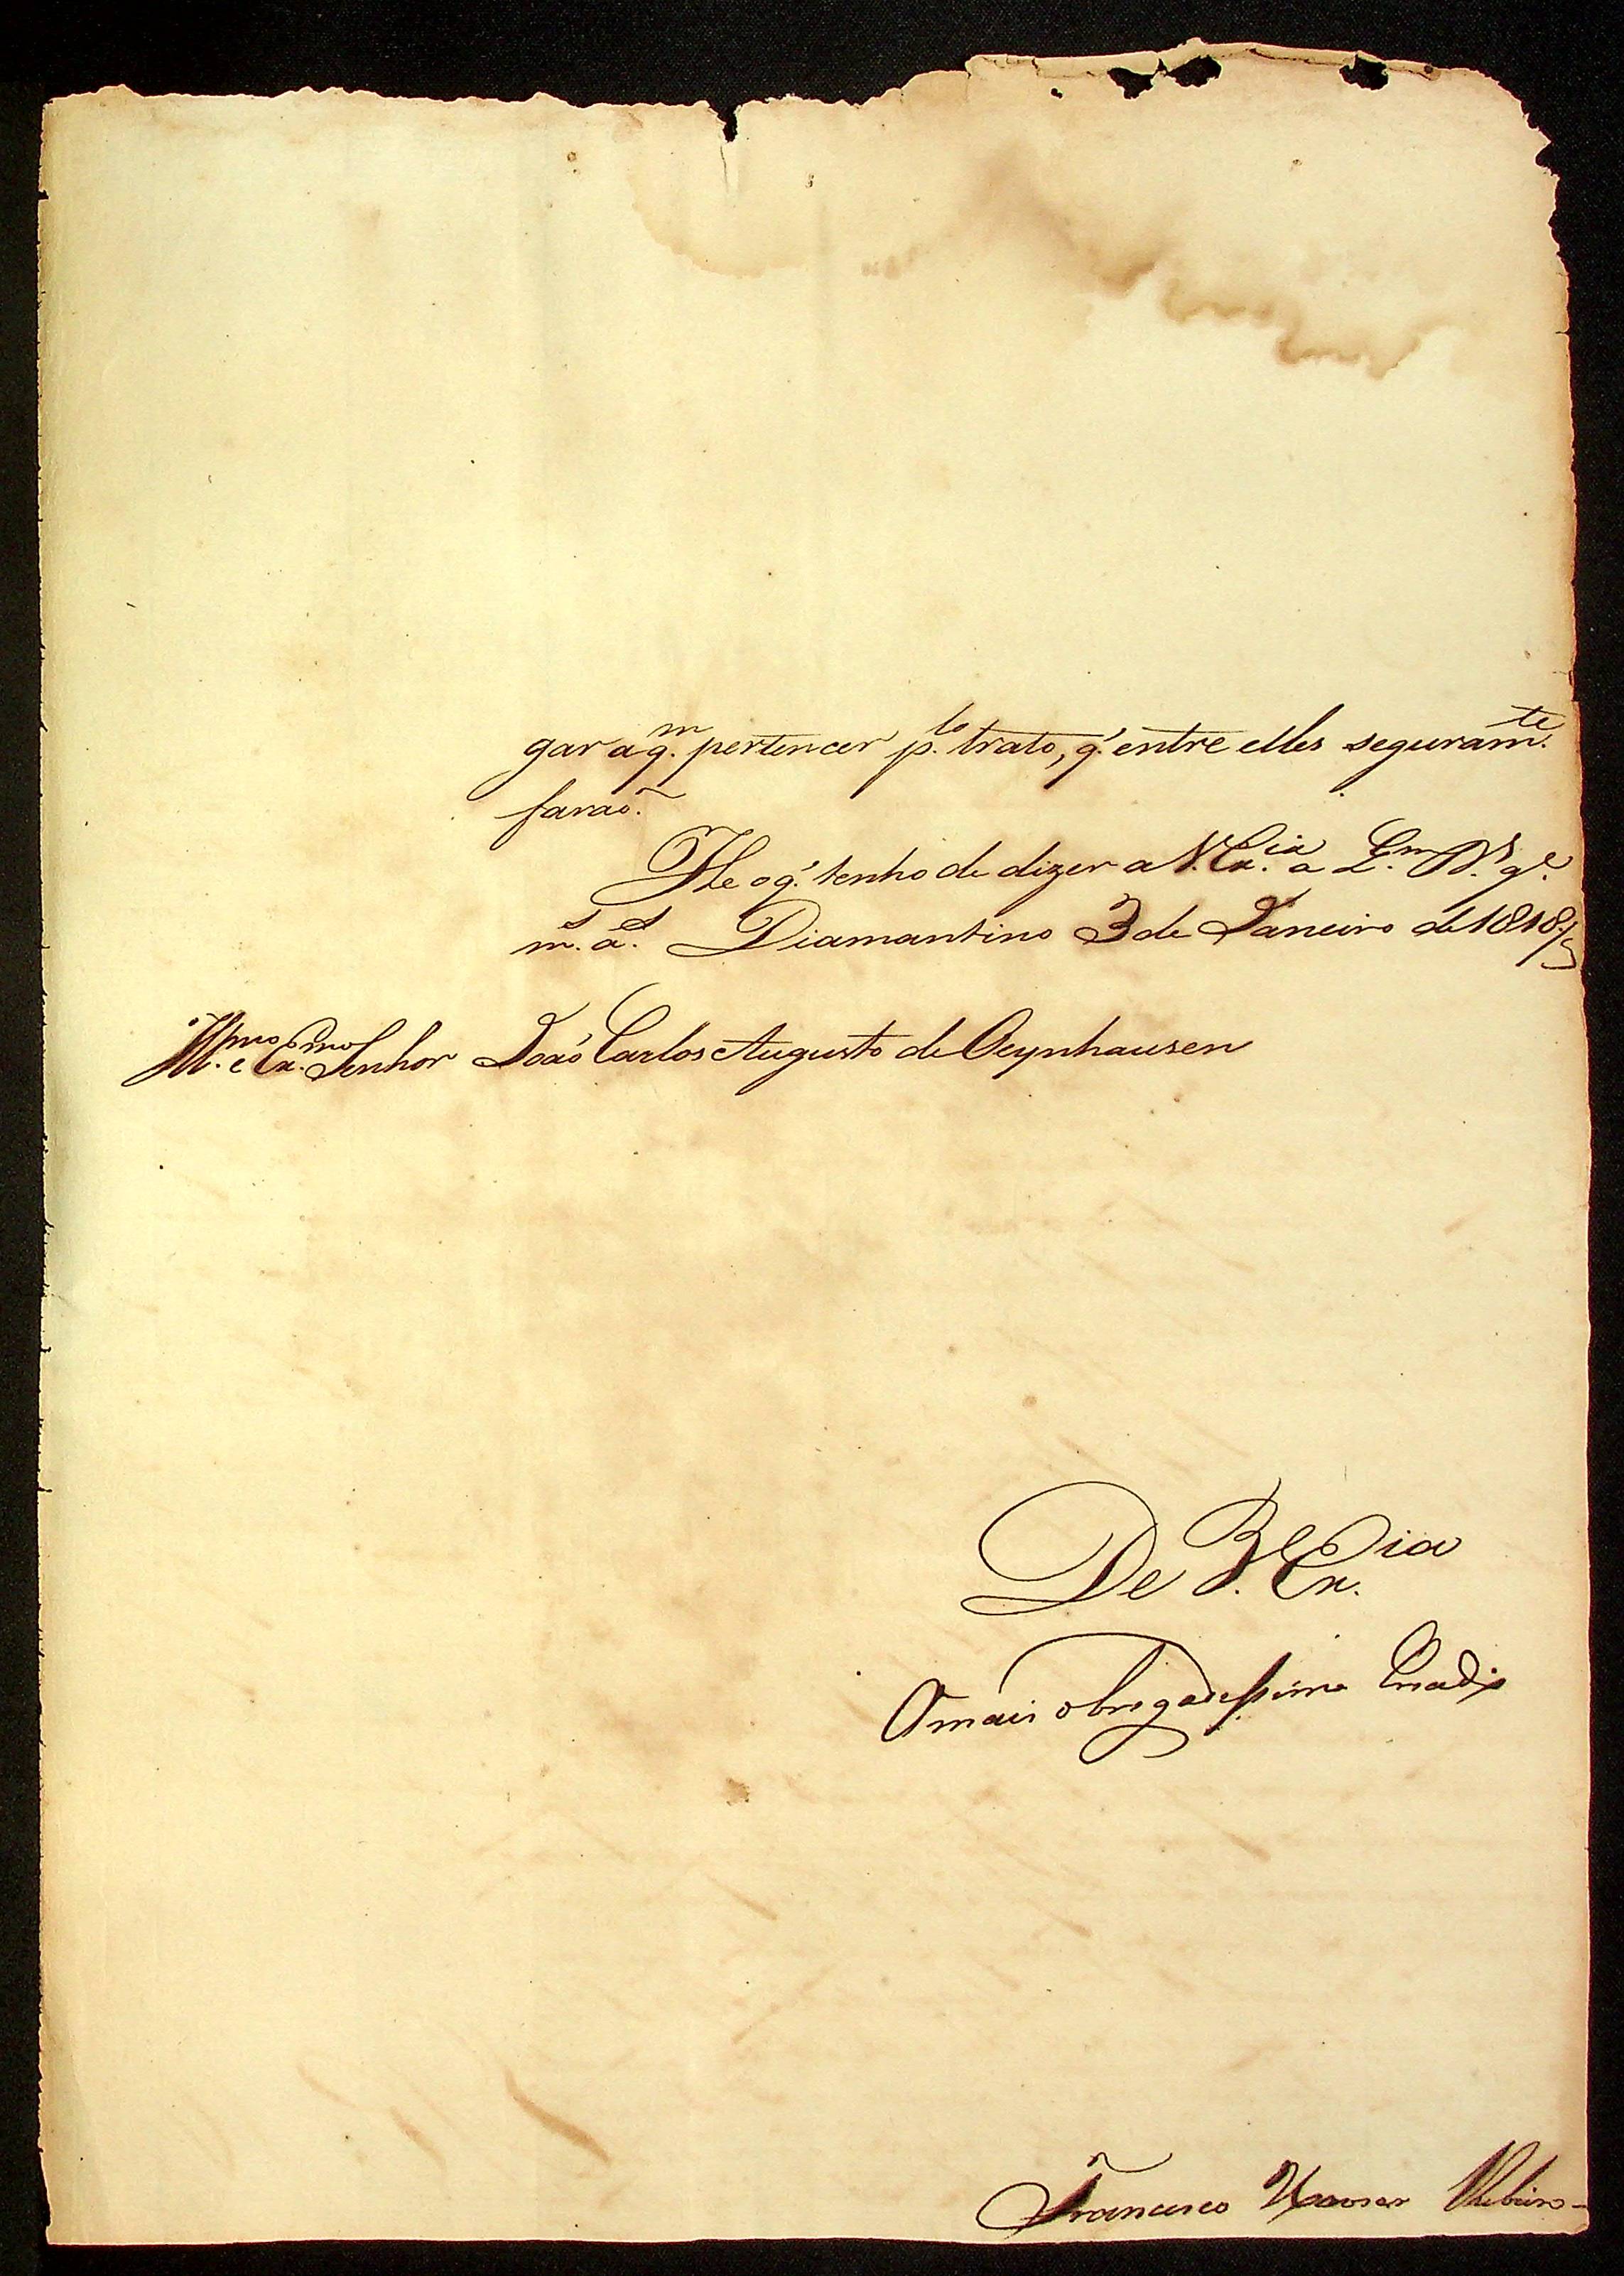 gar a q.m pertencer p.lo trato, q.' entre elles seguram.te
farão.
He o q.' tenho de dizer a V. Ex.cia a q.m D.s g.e
m.s a.s Diamantino 3 de Janeiro de 1818,,
Ill.mo e Ex.mo Senhor João Carlos Augusto de Oeynhausen
De V. Ex.cia
O mais obrigadissimo Criado
Francisco Xavier Ribeiro